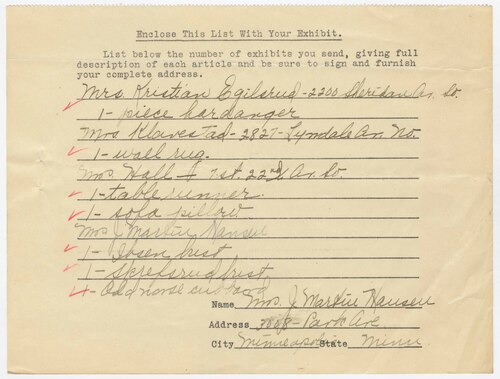 Enclose This List With Your Exhibit.
List below the number of exhibits you send, giving full
description of each article and be sure to sign and furnish
your complete address.
Mrs Kristian Egilsrud - 2200 Sheridan Av. So.
1 - piece hardanger
Mrs Klavestad - 2827 - Lyndale Av. No.
1 - wall rug.
Mrs. Hall 22nd Av. So.
1 - table runner
1 - sofa pillow
Mrs J. Martin Hansen
1 - Ibsen bust
1 - Skrefsrud bust
4 - Odd norse
Name Mrs. J. Martin Hansen
Address Park Ave
City Minneapolis State Minn.